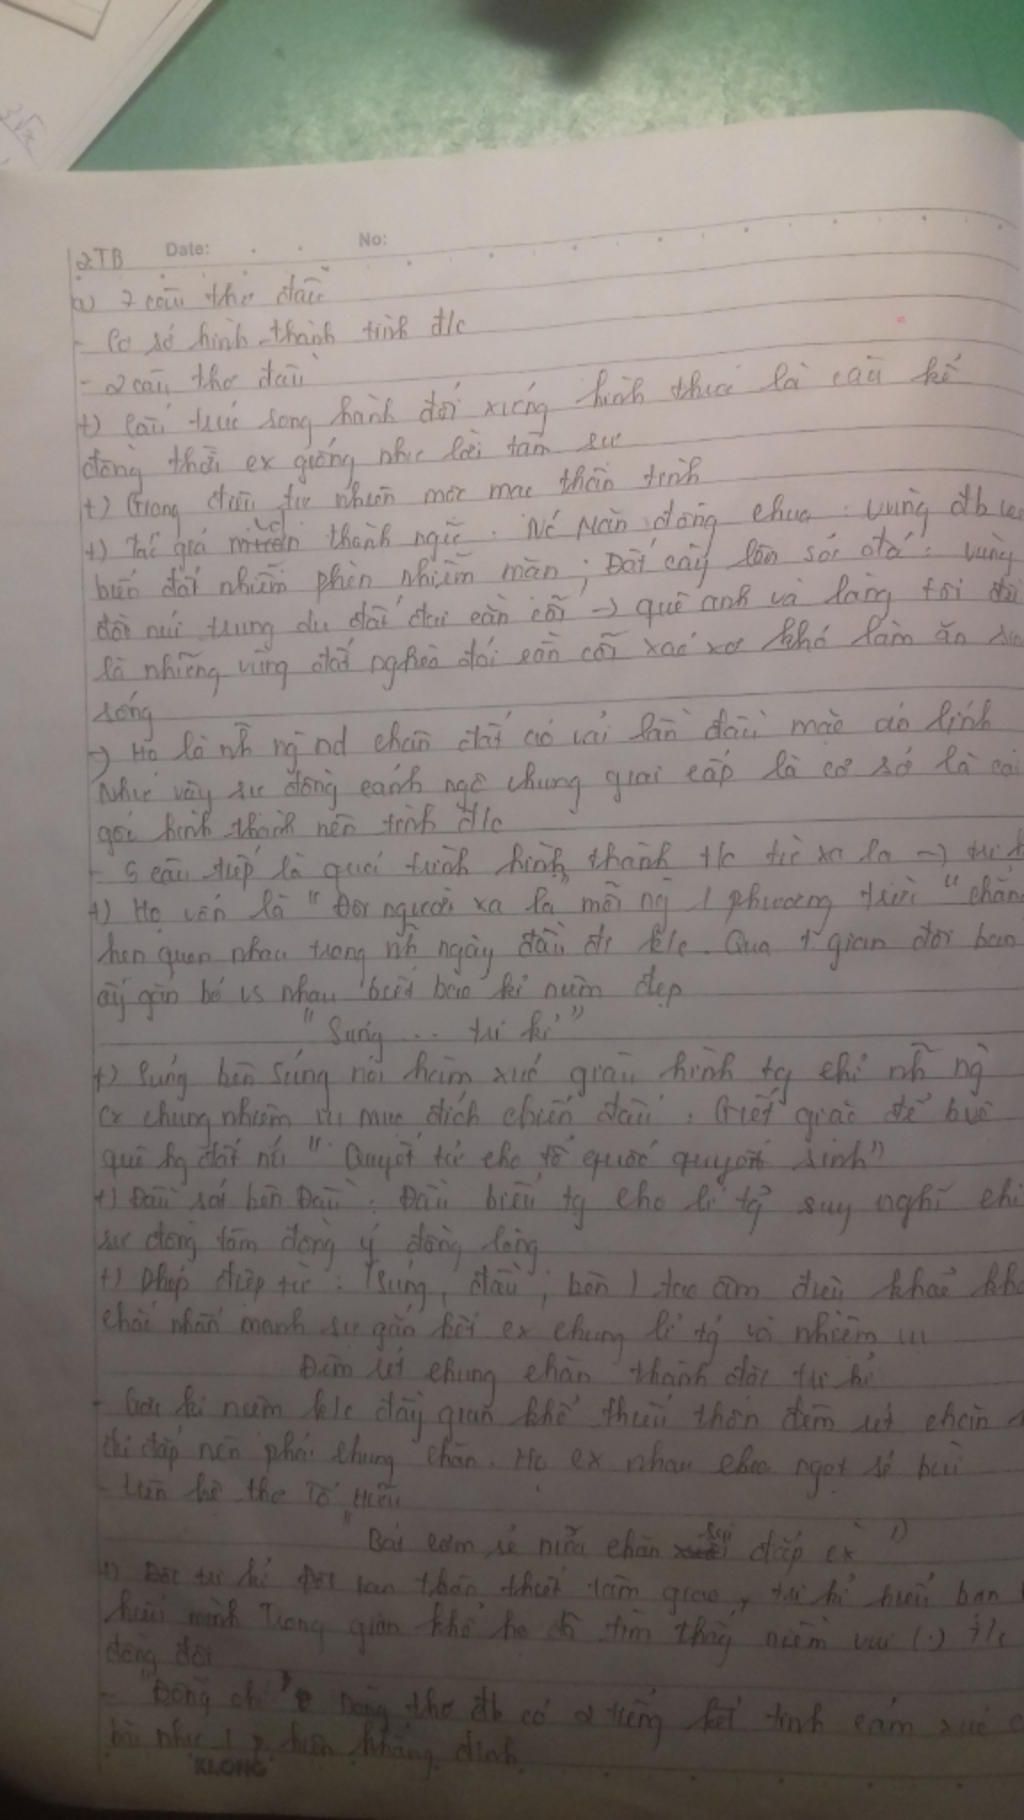 2TB Date: No:
a) 7 câu thơ đầu
- Cơ sở hình thành tình đ/c
- 2 câu thơ đầu
+) Cấu trúc song hành đối xứng hình thức là câu kể
đồng thời ex giống như lời tâm sự
+) Giọng điệu tự nhiên mộc mạc thân tình
+) Tác giả thành ngữ. Nước mặn đồng chua: vùng đb ven
biển đất nhiễm phèn nhiễm mặn; Đất cày lên sỏi đá: vùng
đồi núi trung du đất đai cằn cỗi -> quê anh và làng tôi đều
là những vùng đất nghèo đói cằn cỗi xác xơ khó làm ăn sinh
sống
-> Họ là nh~ ng nd chân đất áo vải lần đầu mặc áo lính
Như vậy sự đồng cảnh ngộ chung giai cấp là cơ sở là cái
gốc hình thành nên tình đ/c
- 5 câu tiếp là quá trình hình thành t/c từ xa lạ ->
+) Họ vốn là "Đôi người xa lạ" mỗi ng 1 phương trời "chẳng
hẹn quen nhau trong nh~ ngày đầu đi k/c. Qua t. gian đôi bạn
ấy gắn bó vs nhau biết bao kỉ niệm đẹp
"Súng ... tri kỉ"
+) Súng bên súng nói hàm xúc giàu hình tg chỉ nh~ ng
cx chung nhiệm vụ mục đích chiến đấu: Giết giặc để bvệ
quê hg đất nc "Quyết tử cho tổ quốc quyết sinh"
+) Đầu sát bên Đầu: Đầu biểu tg cho lí tg suy nghĩ chỉ
sự đồng tâm đồng ý đồng lòng
+) Phép điệp từ: (súng, đầu, bên) tạo âm điệu khoẻ
chắc nhấn mạnh sự gắn kết cx chung lí tg và nhiệm vụ
Đêm rét chung chăn thành đôi tri kỉ
- Gợi kỉ niệm k/c đầy gian khổ thiếu thốn đêm rét chăn
đắp nên phải chung chăn. Họ cx nhau chia ngọt sẻ bùi
- Liên hệ thơ Tố Hữu
"Bát cơm sẻ nửa chăn sui đắp cx"
+) Đôi tri kỉ Đôi bạn thân thiết tâm giao, tri kỉ hiểu bạn
hiểu mình Trong gian khổ họ đã tìm thấy niềm vui (.) t/c
đồng đội
- "Đồng chí" Dòng thơ đb có 2 tiếng kết tinh cảm xúc
bài như 1 khẳng định
KLONG